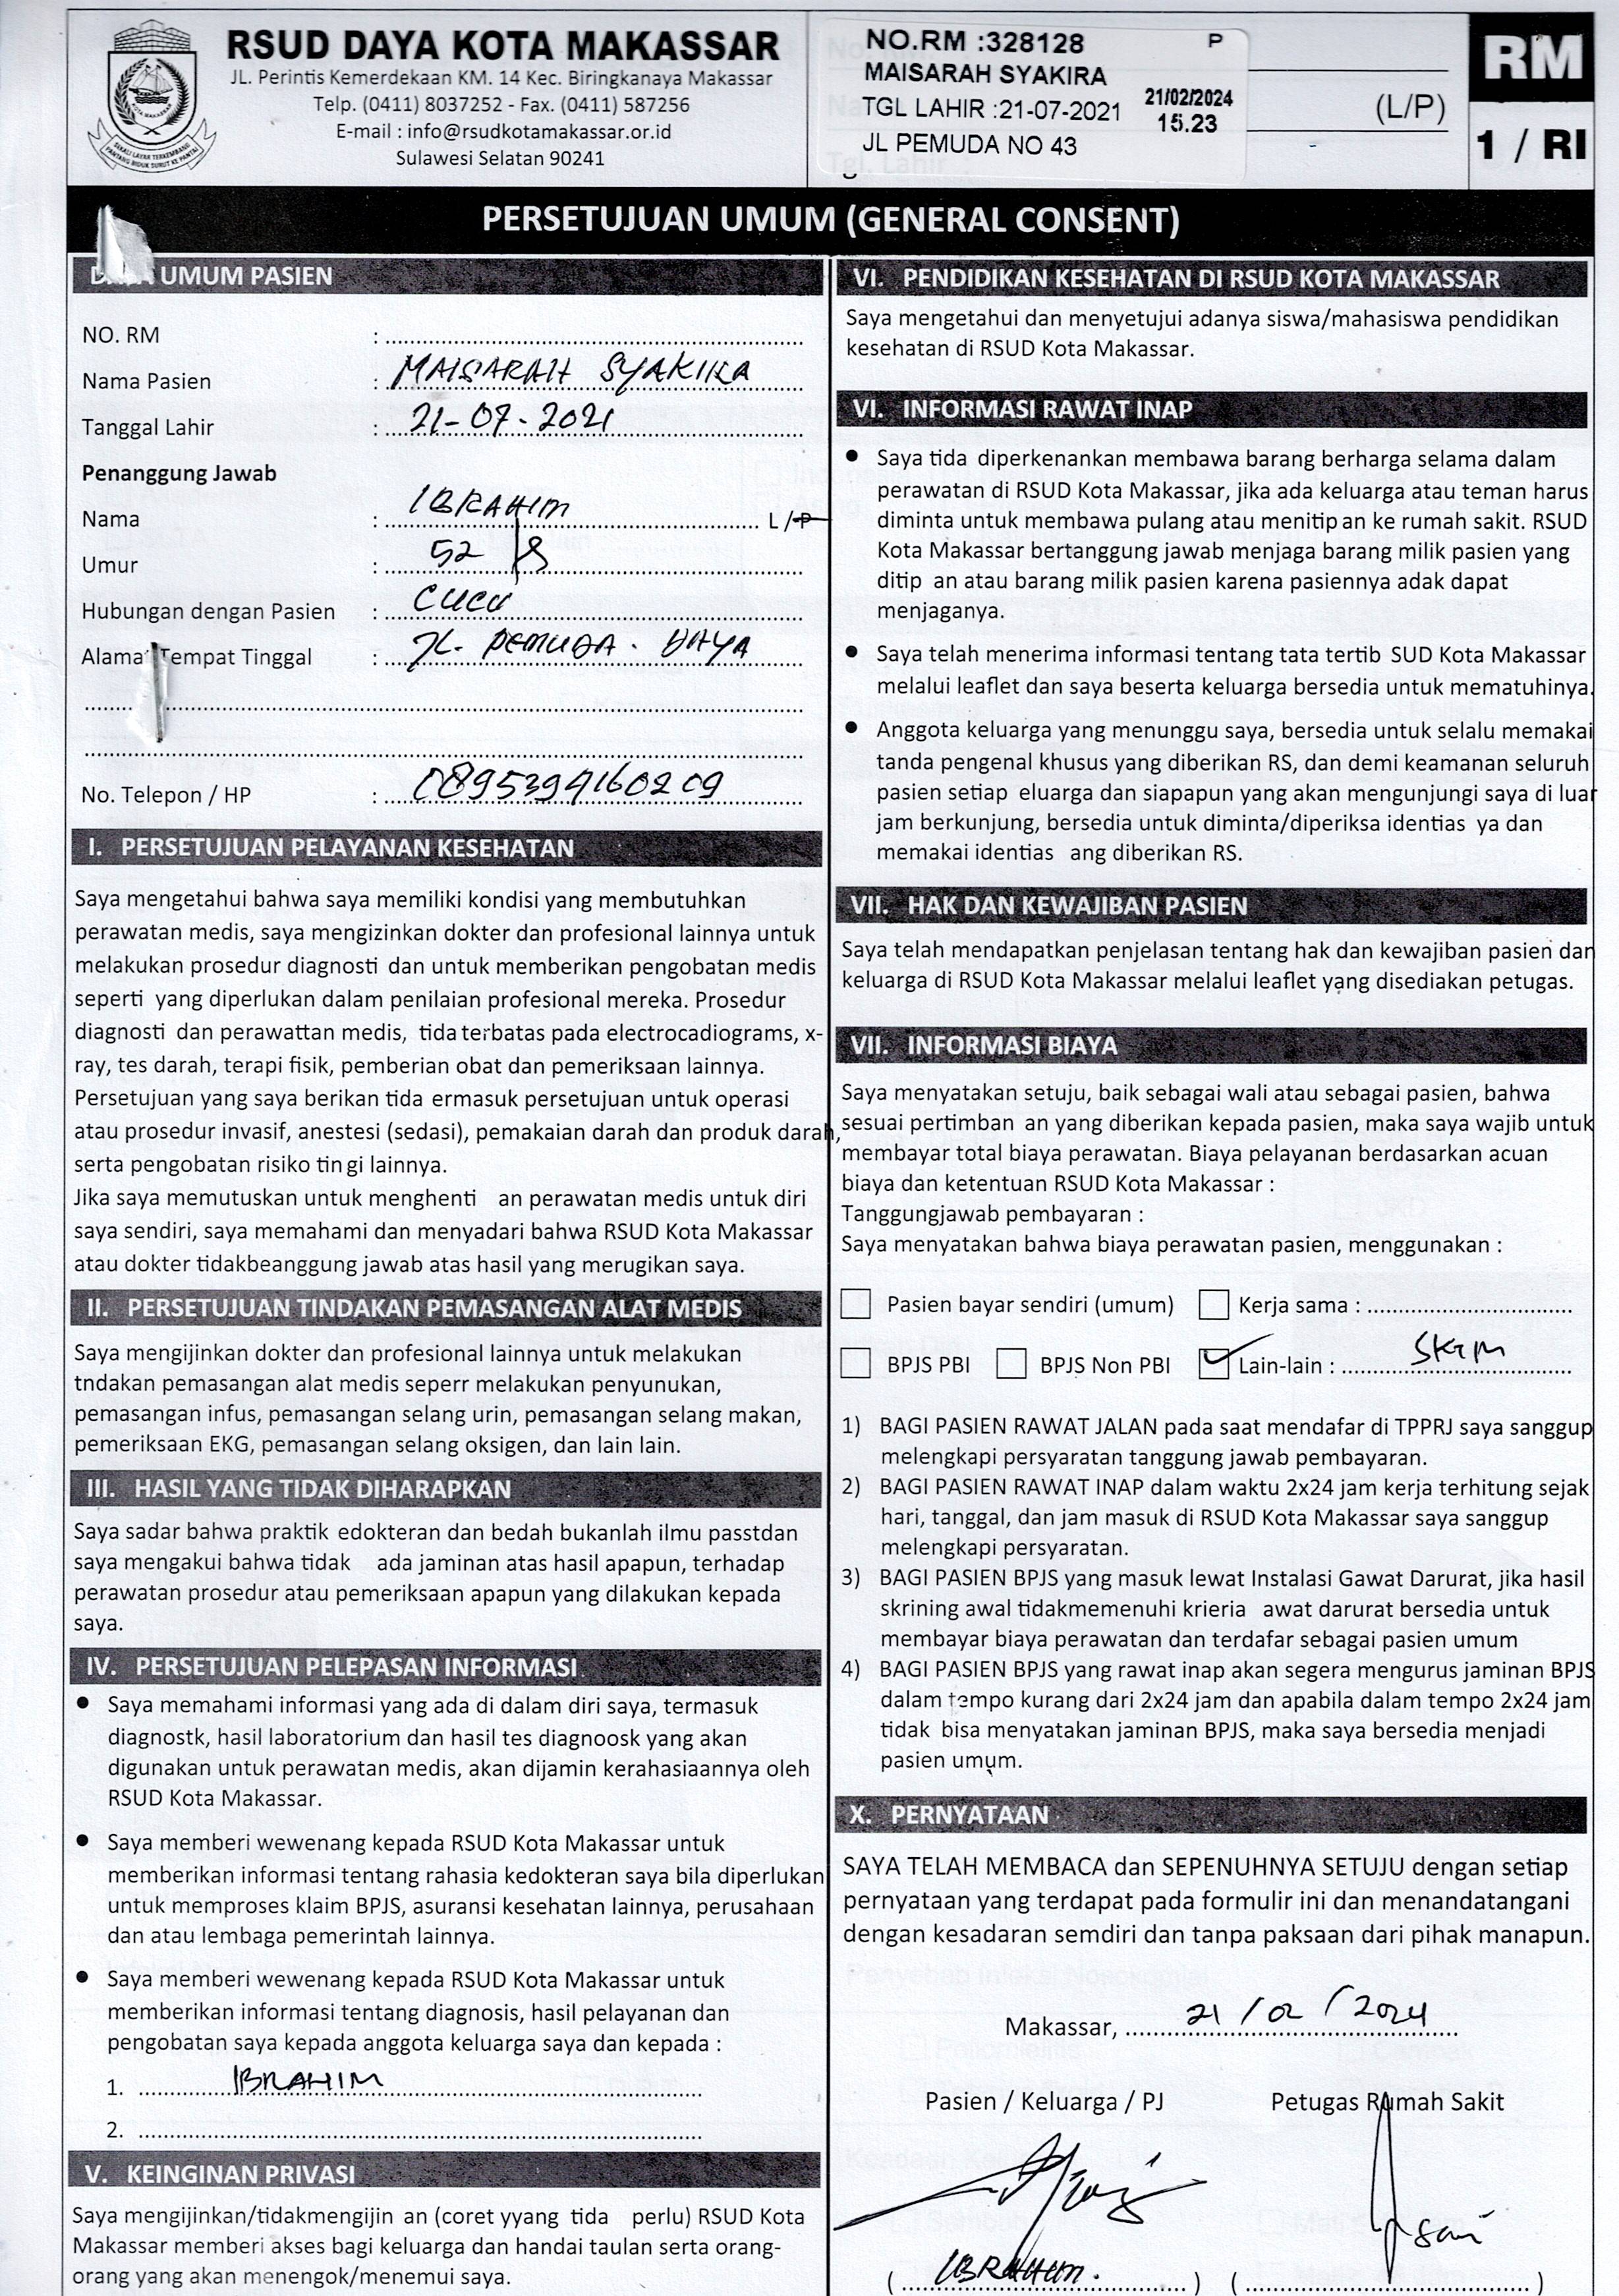 RSUD DAYA KOTA MAKASSAR
JL. Perintis Kemerdekaan KM. 14 Kec. Biringkanaya Makassar
Telp. (0411) 8037252 - Fax. (0411) 587256
E-mail : info@rsudkotamakassar.or.id
Sulawesi Selatan 90241
NO.RM :328128 P
MAISARAH SYAKIRA
TGL LAHIR :21-07-2021 21/02/2024
15.23
JL PEMUDA NO 43
Tgl. Lahir
(L/P)
RM
1 / RI
PERSETUJUAN UMUM (GENERAL CONSENT)
UMUM PASIEN
NO. RM :
Nama Pasien : MAISARAH SYAKIRA
Tanggal Lahir : 21-07-2021
Penanggung Jawab
Nama : IBRAHIM L/P
Umur : 52
Hubungan dengan Pasien : CUCU
Alamat Tempat Tinggal : JL. PEMUDA. DAYA
No. Telepon / HP : 0895394160209
I. PERSETUJUAN PELAYANAN KESEHATAN
Saya mengetahui bahwa saya memiliki kondisi yang membutuhkan
perawatan medis, saya mengizinkan dokter dan profesional lainnya untuk
melakukan prosedur diagnosti dan untuk memberikan pengobatan medis
seperti yang diperlukan dalam penilaian profesional mereka. Prosedur
diagnosti dan perawattan medis, tida terbatas pada electrocadiograms, x-
ray, tes darah, terapi fisik, pemberian obat dan pemeriksaan lainnya.
Persetujuan yang saya berikan tida ermasuk persetujuan untuk operasi
atau prosedur invasif, anestesi (sedasi), pemakaian darah dan produk darah,
serta pengobatan risiko tin gi lainnya.
Jika saya memutuskan untuk menghenti an perawatan medis untuk diri
saya sendiri, saya memahami dan menyadari bahwa RSUD Kota Makassar
atau dokter tidakbeanggung jawab atas hasil yang merugikan saya.
II. PERSETUJUAN TINDAKAN PEMASANGAN ALAT MEDIS
Saya mengijinkan dokter dan profesional lainnya untuk melakukan
tndakan pemasangan alat medis seperr melakukan penyunukan,
pemasangan infus, pemasangan selang urin, pemasangan selang makan,
pemeriksaan EKG, pemasangan selang oksigen, dan lain lain.
III. HASIL YANG TIDAK DIHARAPKAN
Saya sadar bahwa praktik edokteran dan bedah bukanlah ilmu passtdan
saya mengakui bahwa tidak ada jaminan atas hasil apapun, terhadap
perawatan prosedur atau pemeriksaan apapun yang dilakukan kepada
saya.
IV. PERSETUJUAN PELEPASAN INFORMASI
• Saya memahami informasi yang ada di dalam diri saya, termasuk
diagnostk, hasil laboratorium dan hasil tes diagnoosk yang akan
digunakan untuk perawatan medis, akan dijamin kerahasiaannya oleh
RSUD Kota Makassar.
• Saya memberi wewenang kepada RSUD Kota Makassar untuk
memberikan informasi tentang rahasia kedokteran saya bila diperlukan
untuk memproses klaim BPJS, asuransi kesehatan lainnya, perusahaan
dan atau lembaga pemerintah lainnya.
• Saya memberi wewenang kepada RSUD Kota Makassar untuk
memberikan informasi tentang diagnosis, hasil pelayanan dan
pengobatan saya kepada anggota keluarga saya dan kepada :
1. IBRAHIM
2.
V. KEINGINAN PRIVASI
Saya mengijinkan/tidakmengijin an (coret yyang tida perlu) RSUD Kota
Makassar memberi akses bagi keluarga dan handai taulan serta orang-
orang yang akan menengok/menemui saya.
VI. PENDIDIKAN KESEHATAN DI RSUD KOTA MAKASSAR
Saya mengetahui dan menyetujui adanya siswa/mahasiswa pendidikan
kesehatan di RSUD Kota Makassar.
VI. INFORMASI RAWAT INAP
• Saya tida diperkenankan membawa barang berharga selama dalam
perawatan di RSUD Kota Makassar, jika ada keluarga atau teman harus
diminta untuk membawa pulang atau menitip an ke rumah sakit. RSUD
Kota Makassar bertanggung jawab menjaga barang milik pasien yang
ditip an atau barang milik pasien karena pasiennya adak dapat
menjaganya.
• Saya telah menerima informasi tentang tata tertib SUD Kota Makassar
melalui leaflet dan saya beserta keluarga bersedia untuk mematuhinya.
• Anggota keluarga yang menunggu saya, bersedia untuk selalu memakai
tanda pengenal khusus yang diberikan RS, dan demi keamanan seluruh
pasien setiap eluarga dan siapapun yang akan mengunjungi saya di luar
jam berkunjung, bersedia untuk diminta/diperiksa identias ya dan
memakai identias ang diberikan RS.
VII. HAK DAN KEWAJIBAN PASIEN
Saya telah mendapatkan penjelasan tentang hak dan kewajiban pasien dan
keluarga di RSUD Kota Makassar melalui leaflet yang disediakan petugas.
VII. INFORMASI BIAYA
Saya menyatakan setuju, baik sebagai wali atau sebagai pasien, bahwa
sesuai pertimban an yang diberikan kepada pasien, maka saya wajib untuk
membayar total biaya perawatan. Biaya pelayanan berdasarkan acuan
biaya dan ketentuan RSUD Kota Makassar :
Tanggungjawab pembayaran :
Saya menyatakan bahwa biaya perawatan pasien, menggunakan :
Pasien bayar sendiri (umum) Kerja sama :
BPJS PBI BPJS Non PBI Lain-lain : SKTM
1) BAGI PASIEN RAWAT JALAN pada saat mendafar di TPPRJ saya sanggup
melengkapi persyaratan tanggung jawab pembayaran.
2) BAGI PASIEN RAWAT INAP dalam waktu 2x24 jam kerja terhitung sejak
hari, tanggal, dan jam masuk di RSUD Kota Makassar saya sanggup
melengkapi persyaratan.
3) BAGI PASIEN BPJS yang masuk lewat Instalasi Gawat Darurat, jika hasil
skrining awal tidakmemenuhi krieria awat darurat bersedia untuk
membayar biaya perawatan dan terdafar sebagai pasien umum
4) BAGI PASIEN BPJS yang rawat inap akan segera mengurus jaminan BPJS
dalam tempo kurang dari 2x24 jam dan apabila dalam tempo 2x24 jam
tidak bisa menyatakan jaminan BPJS, maka saya bersedia menjadi
pasien umum.
X. PERNYATAAN
SAYA TELAH MEMBACA dan SEPENUHNYA SETUJU dengan setiap
pernyataan yang terdapat pada formulir ini dan menandatangani
dengan kesadaran semdiri dan tanpa paksaan dari pihak manapun.
Makassar, 21/02/2024
Pasien / Keluarga / PJ Petugas Rumah Sakit
(IBRAHIM.) ( )